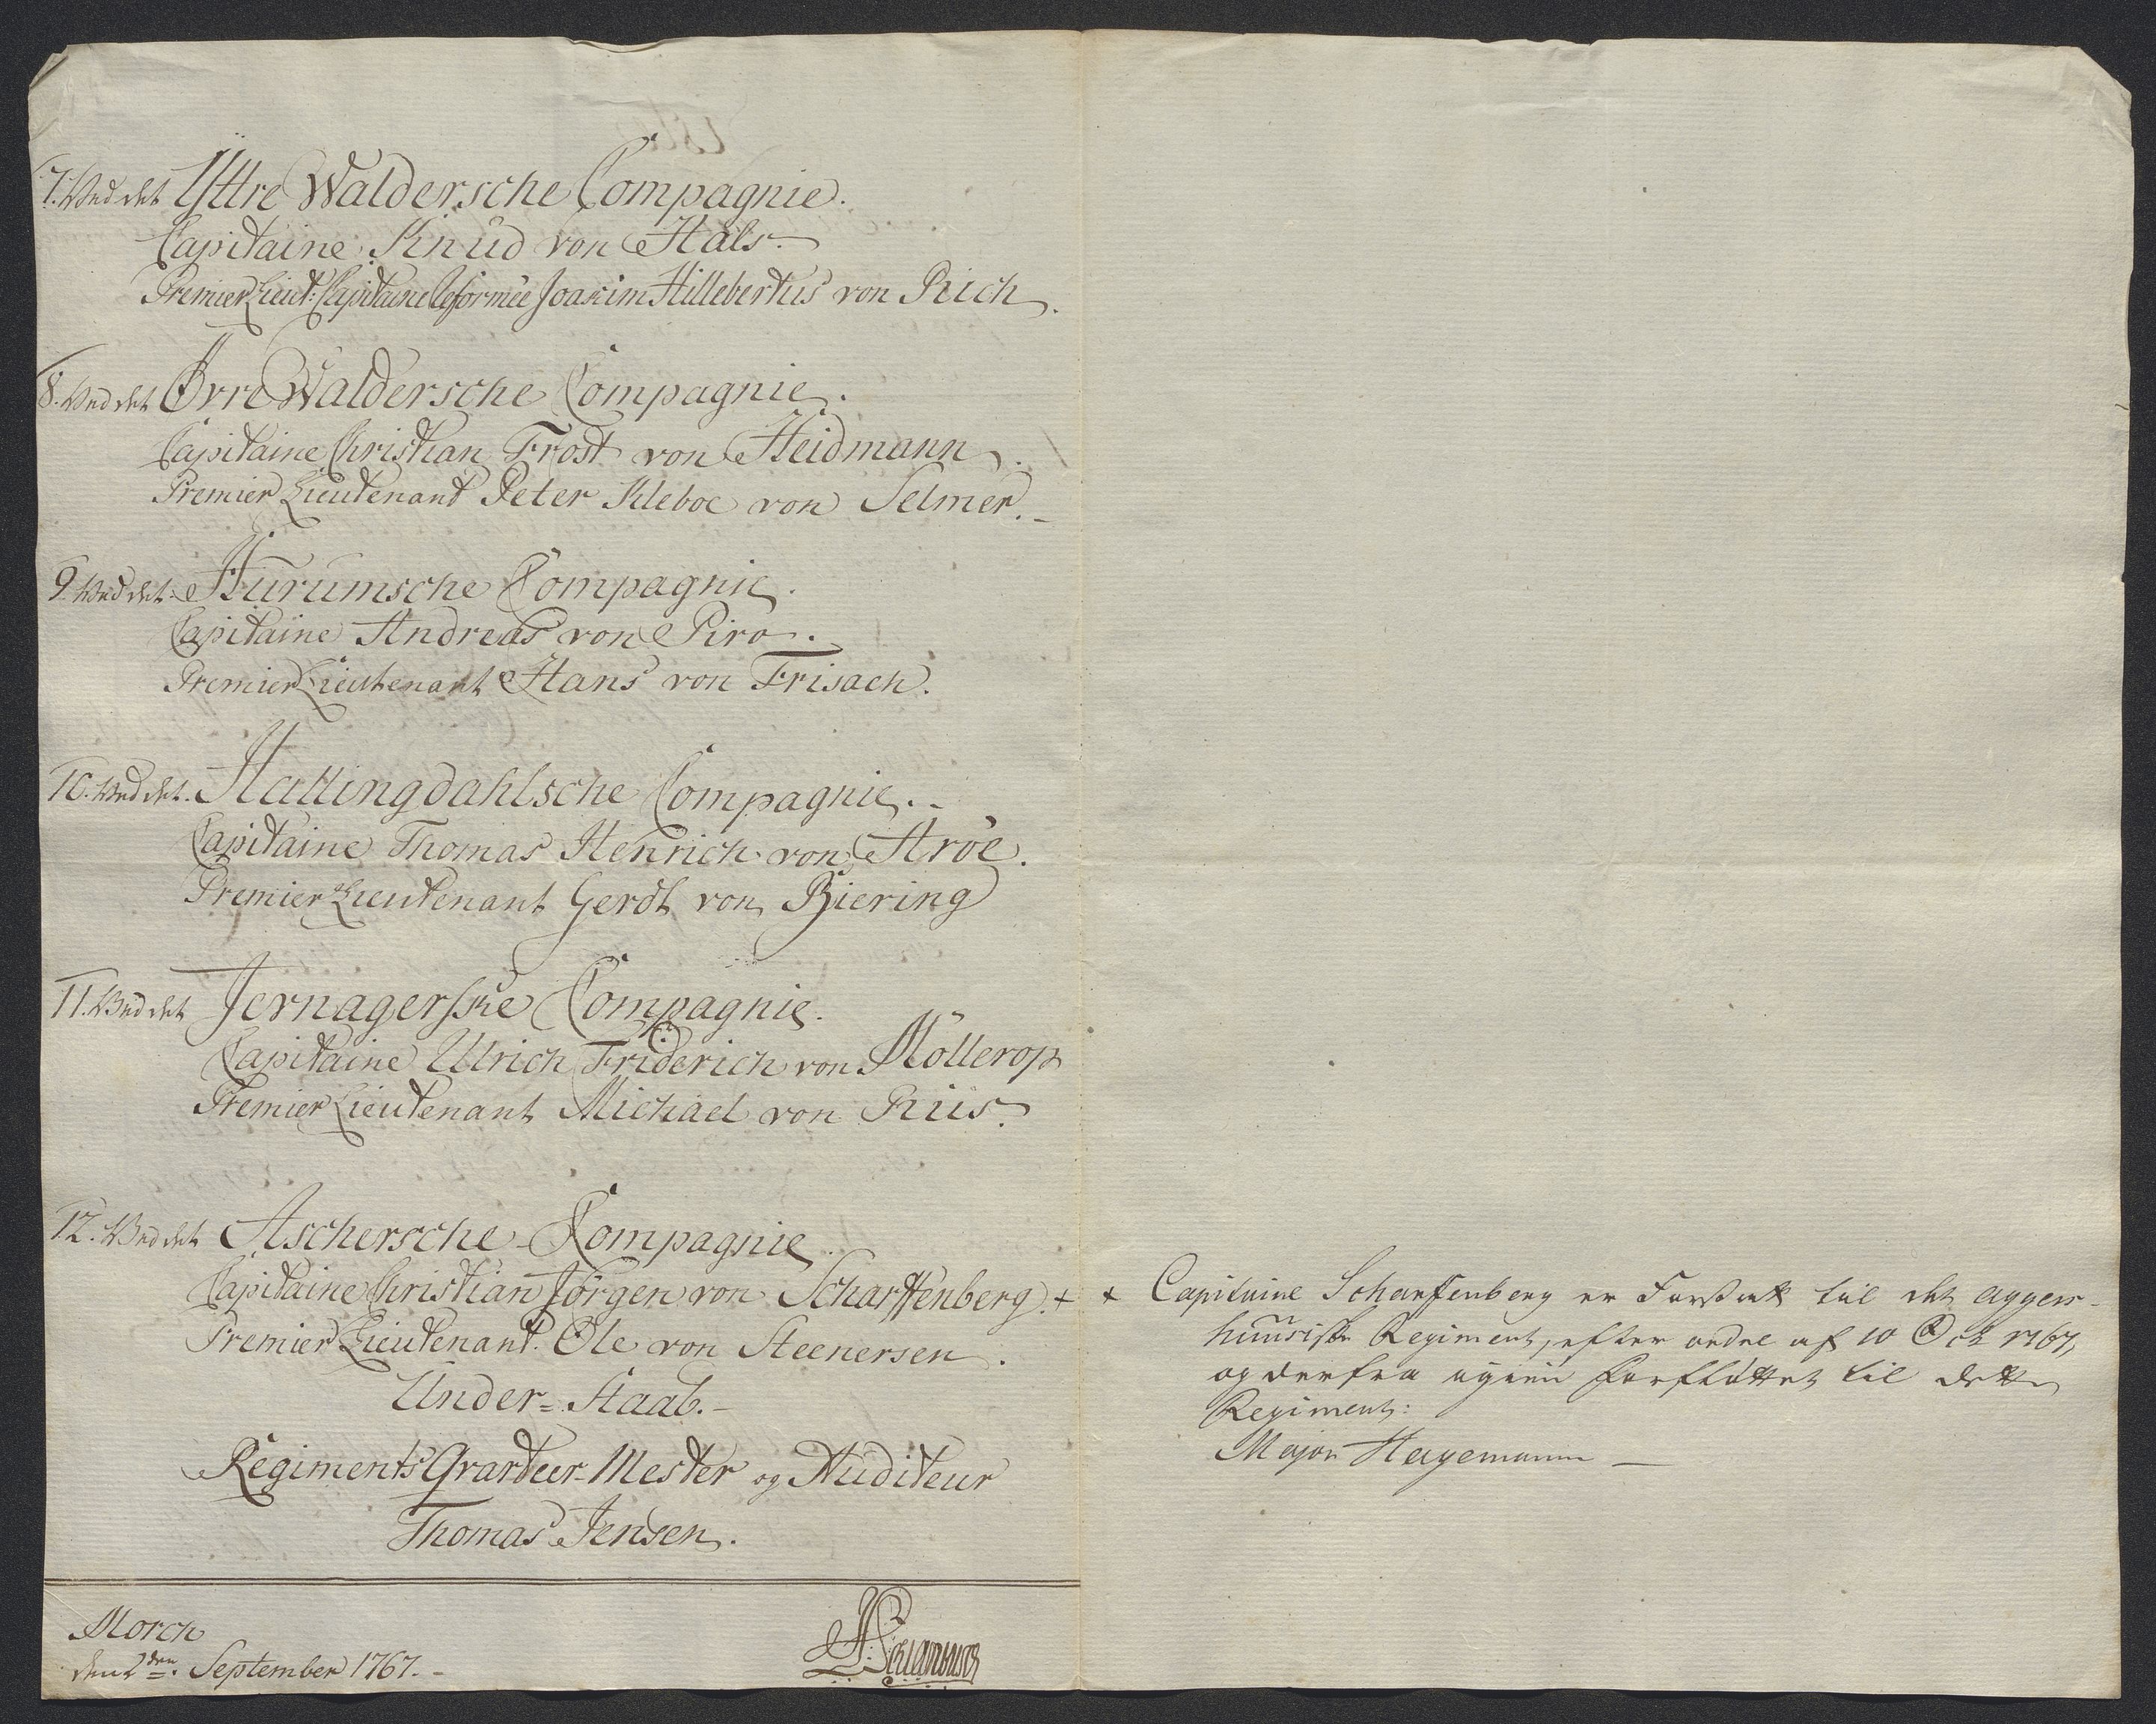 7. Ved det Yttre Waldersche Compagnie.
Capitaine Knud von Hals.
Premier Lieut: Capitaine Reformée Joakim Hillebertus von Rich.
8. Ved det Øvre Waldersche Compagnie.
Capitaine Christian Frost von Heidmann.
Premier Lieutenant Peter Kleboe von Selmer.
9. Ved det Hurumsche Compagnie.
Capitaine Andreas von Piro.
Premier Lieutenant Hans von Frisach.
10. Ved det Hallingdahlsche Compagnie.
Capitaine Thomas Henrich von Stroe.
Premier Lieutenant Gerdt von Biering
11. Ved det Jernagerske Compagnie.
Capitaine Ulrich Friderich von Möllerop
Premier Lieutenant Michael von Riis.
12. Ved det Aschersche Compagnie.
Capitaine Christian Jörgen von Scharffenberg. +
Premier Lieutenant Ole von Steenersen.
Under=Staab.
Regiments Qvarteer-Mester og Auditeur
Thomas Jensen.
Morch
den 2den September 1767.
+ Capitaine Scharffenberg er Forsat til det Agger-
huusiske Regiment, efter ordre af 10 Oct 1767,
og derfra igien forfløttet til dette
Regiment:
Major Hagemann